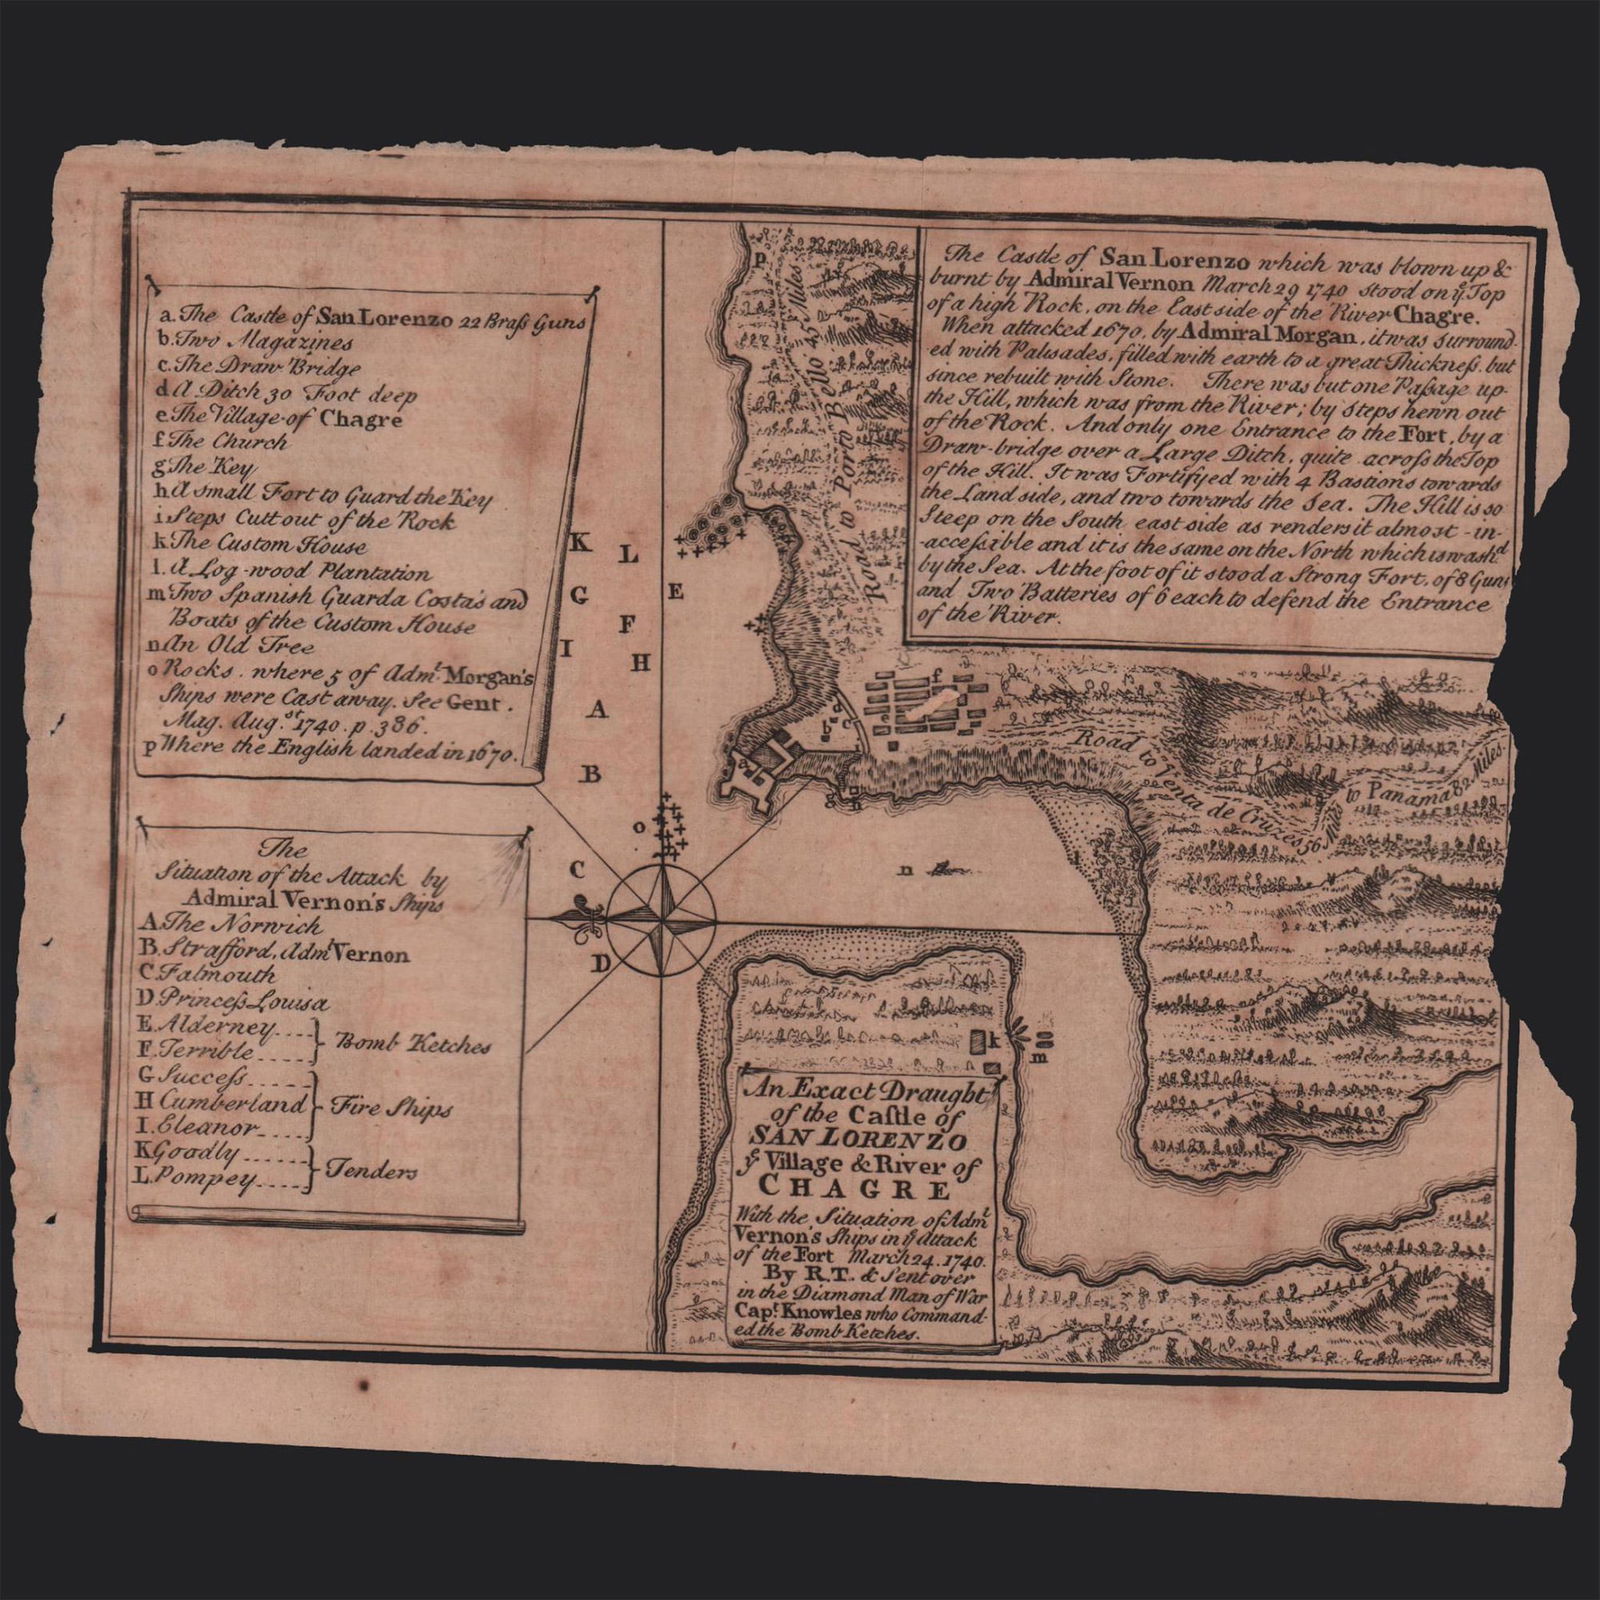 a. The Castle of San Lorenzo 22 Braſs Guns
b. Two Magazines
c. The Draw Bridge
d A Ditch 30 Foot deep
e The Village of Chagre
f The Church
g The Key
h A small Fort to Guard the Key
i. Steps Cutt out of the Rock
k The Custom House
l. A Log-wood Plantation
m Two Spanish Guarda Costas and
Boats of the Custom House
n An Old Tree
o Rocks. where 5 of Admˡ. Morgan's
Ships were Cast away. See Gent.
Mag. Aug.ˢᵗ 1740. p. 386.
p Where the English landed in 1670.
The
Situation of the Attack by
Admiral Vernon's Ships
A. The Norwich
B. Strafford, Admˡ Vernon
C. Falmouth
D. Princeſs Louisa
E. Alderney....
F. Terrible..... } Bomb Ketches
G Succeſs.....
H Cumberland } Fire Ships
I. Eleanor.....
K Goodly......
L. Pompey.... } Tenders
The Castle of San Lorenzo which was blown up &
burnt by Admiral Vernon March 29 1740 stood on yᵉ Top
of a high Rock, on the East side of the River Chagre.
When attacked 1670, by Admiral Morgan, it was surround-
ed with Palisades, filled with earth to a great Thickneſs, but
since rebuilt with Stone. There was but one Paſsage up
the Hill, which was from the River; by Steps hewn out
of the Rock. And only one Entrance to the Fort, by a
Draw-bridge over a Large Ditch, quite acroſs the Top
of the Hill. It was Fortifyed with 4 Bastions towards
the Land side, and two towards the Sea. The Hill is so
Steep on the South east side as renders it almost in-
-acceſsible and it is the same on the North which is washᵈ
by the Sea. At the foot of it stood a Strong Fort, of 8 Guns
and Two Batteries of 6 each to defend the Entrance
of the River.
p
Road to Porto Bello 45 Miles
K
L
G
E
F
I
H
A
B
C
D
o
f
e
b
d
c
a
g
h
Road to Venta de Cruzes 56
to Panama 82 Miles
l
n
k
m
An Exact Draught
of the Caſtle of
SAN LORENZO
yᵉ Village & River of
CHAGRE
With the Situation of Admˡ
Vernon's Ships in yᵉ Attack
of the Fort March 24. 1740.
By R.T. & Sent over
in the Diamond Man of War
Capᵗ. Knowles who Command-
ed the Bomb Ketches.